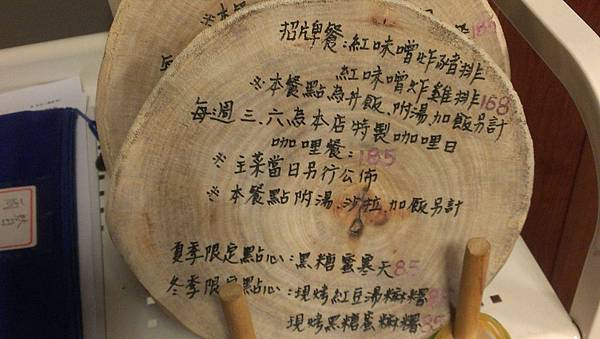 招牌餐:紅味噌炸豬排
紅味噌炸雞排168
※本餐點為丼飯、附湯、加飯另計
每週三、六為本店特製咖哩日
咖哩餐:185
※主菜當日另行公佈
※本餐點附湯、沙拉、加飯另計
夏季限定點心:黑糖蜜寒天85
冬季限定點心:現烤紅豆湯麻糬85
現烤黑糖蜜麻糬85